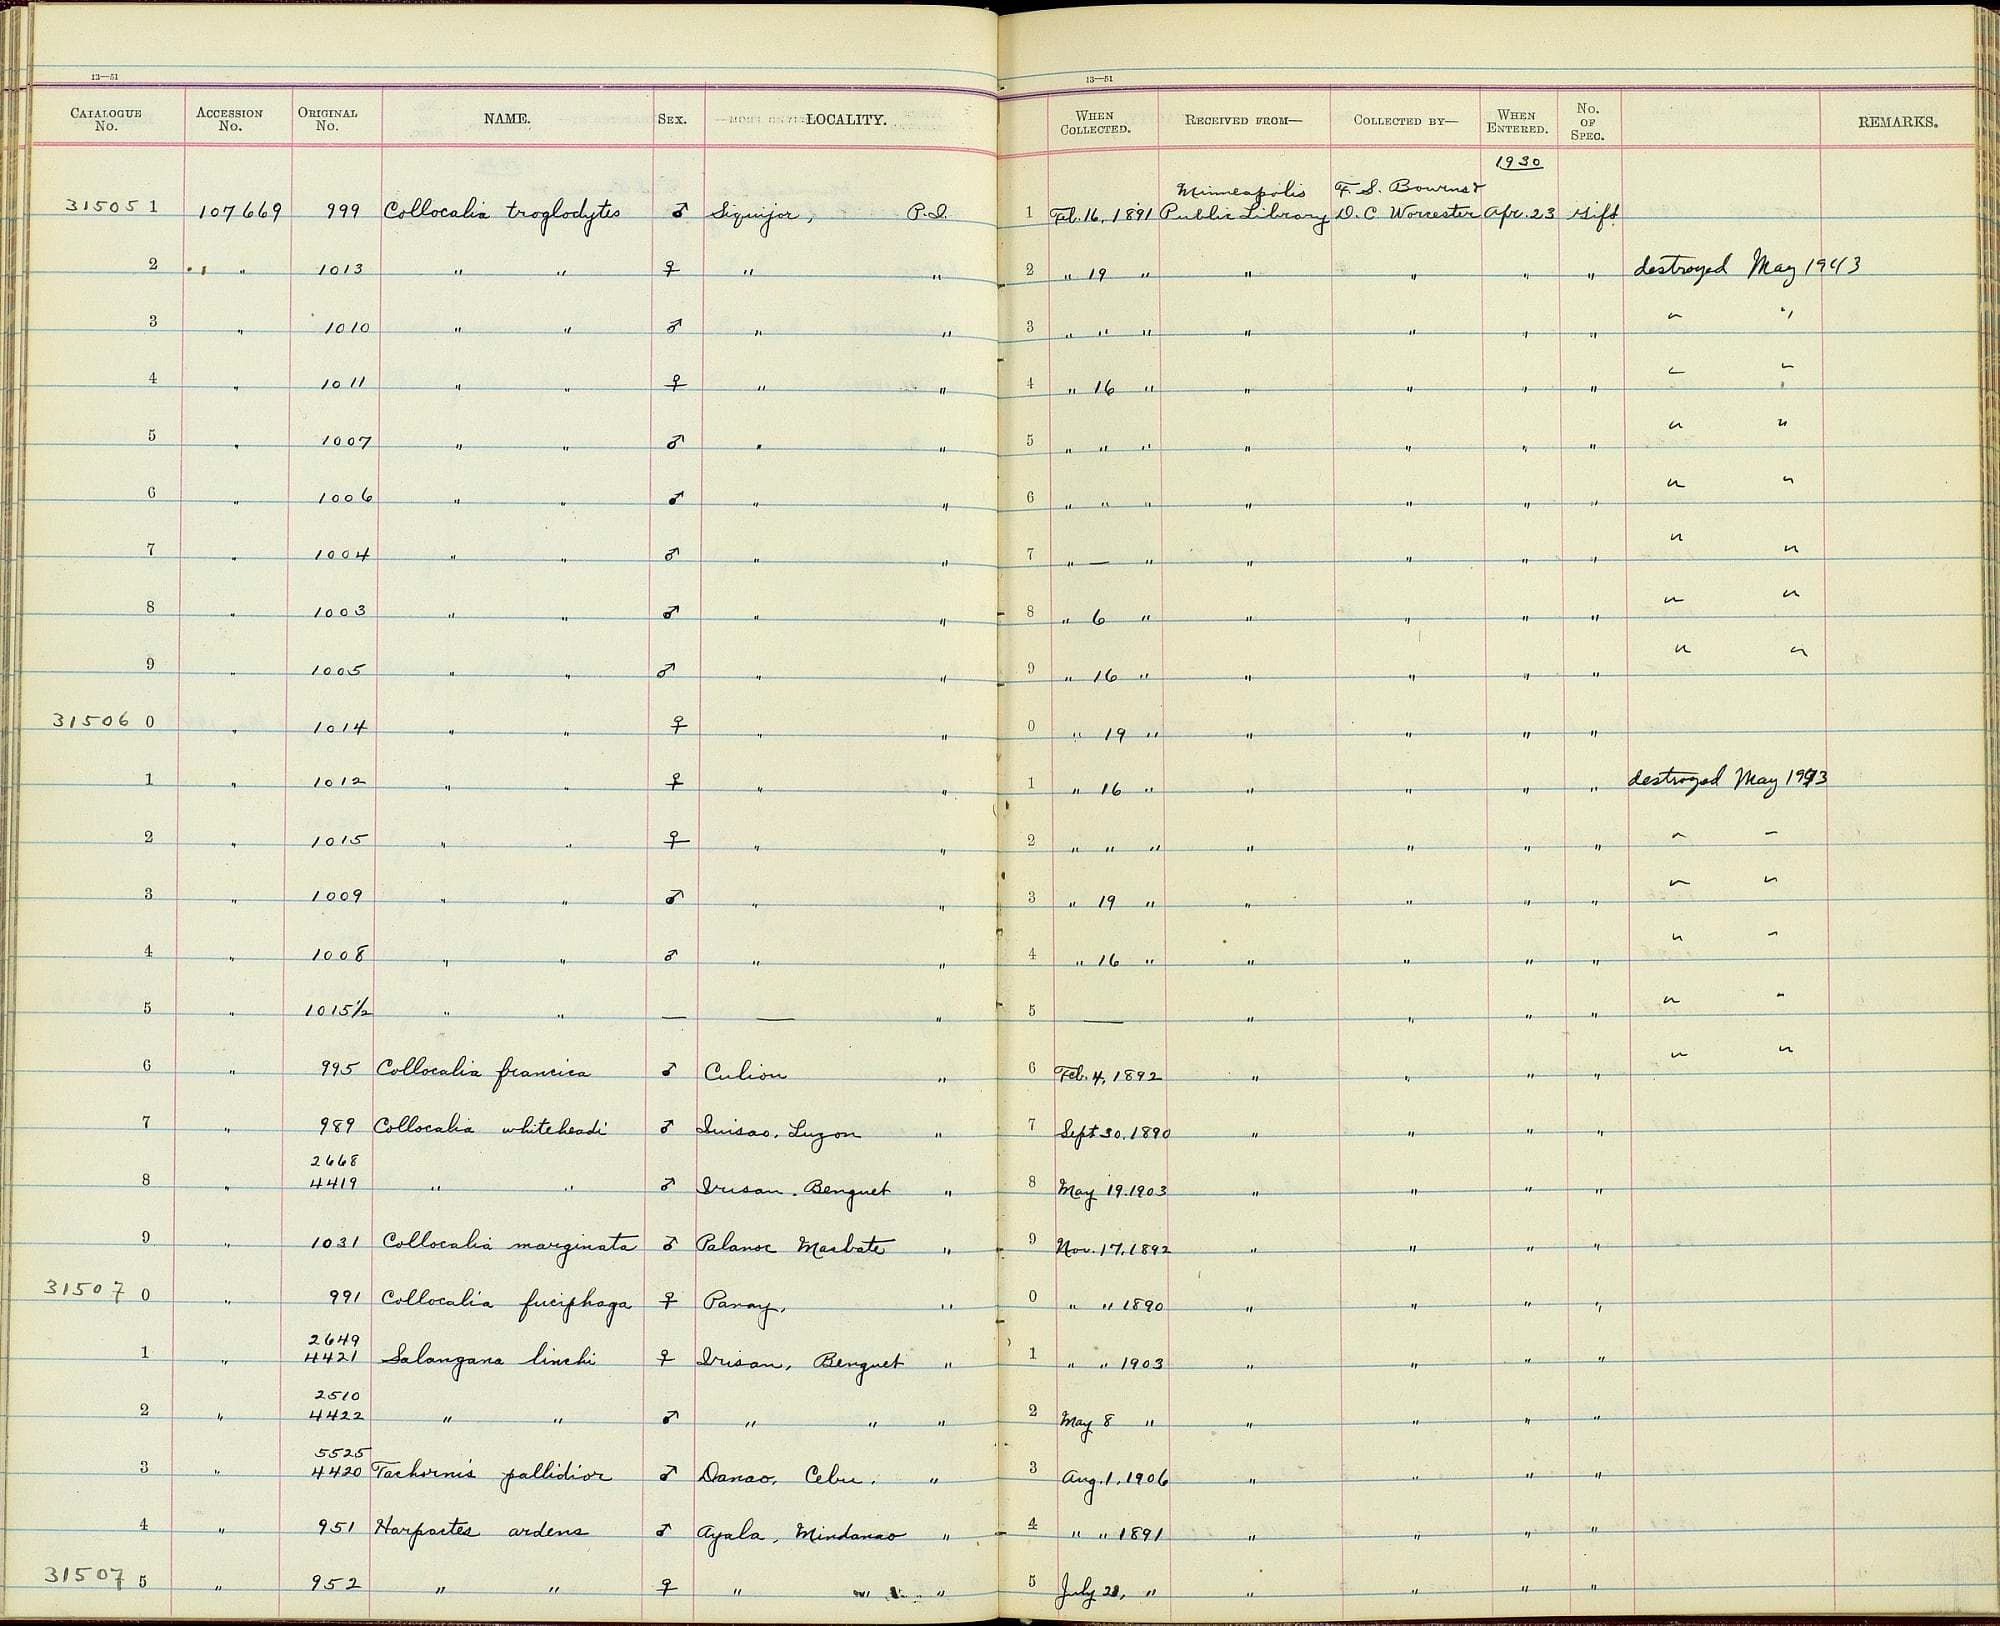 13—51
13—51
CATALOGUE No. ACCESSION No. ORIGINAL No. NAME. SEX. LOCALITY. WHEN COLLECTED. RECEIVED FROM— COLLECTED BY— WHEN ENTERED. No. OF SPEC. REMARKS.
1930
Minneapolis F. S. Bourns &
31505 1 107669 999 Collocalia troglodytes ♂ Siquijor, P.I. 1 Feb. 16, 1891 Public Library D. C Worcester Apr. 23 Gift
2 " 1013 " " ♀ " " 2 " 19 " " " " " destroyed May 1943
3 " 1010 " " ♂ " " 3 " " " " " " " " "
4 " 1011 " " ♀ " " 4 " 16 " " " " " " "
5 " 1007 " " ♂ " " 5 " " " " " " " " "
6 " 1006 " " ♂ " " 6 " " " " " " " " "
7 " 1004 " " ♂ " " 7 " — " " " " " " "
8 " 1003 " " ♂ " " 8 " 6 " " " " " " "
9 " 1005 " " ♂ " " 9 " 16 " " " " " " "
31506 0 " 1014 " " ♀ " " 0 " 19 " " " " "
1 " 1012 " " ♀ " " 1 " 16 " " " " " destroyed May 1943
2 " 1015 " " ♀ " " 2 " " " " " " " " "
3 " 1009 " " ♂ " " 3 " 19 " " " " " " "
4 " 1008 " " ♂ " " 4 " 16 " " " " " " "
5 " 1015½ " " — — " 5 — " " " " " "
6 " 995 Collocalia francica ♂ Culion " 6 Feb. 4, 1892 " " " " " "
7 " 989 Collocalia whiteheadi ♂ Luzon " 7 Sept 30, 1890 " " " "
2668
8 " 4419 " " ♂ Irisan, Benguet " 8 May 19, 1903 " " " "
9 " 1031 Collocalia marginata ♂ Palanoc Masbate " 9 Nov. 17, 1892 " " " "
31507 0 " 991 Collocalia fuciphaga ♀ Panay, " 0 " " 1890 " " " "
2649
1 " 4421 Salangana linchi ♀ Irisan, Benguet " 1 " " 1903 " " " "
2510
2 " 4422 " " ♂ " " " 2 May 8 " " " " "
5525
3 " 4420 Tachornis pallidior ♂ Danao, Cebu. " 3 Aug. 1, 1906 " " " "
4 " 951 Harpactes ardens ♂ Ayala, Mindanao " 4 " " 1891 " " " "
31507 5 " 952 " " ♀ " " " 5 July " " " " "